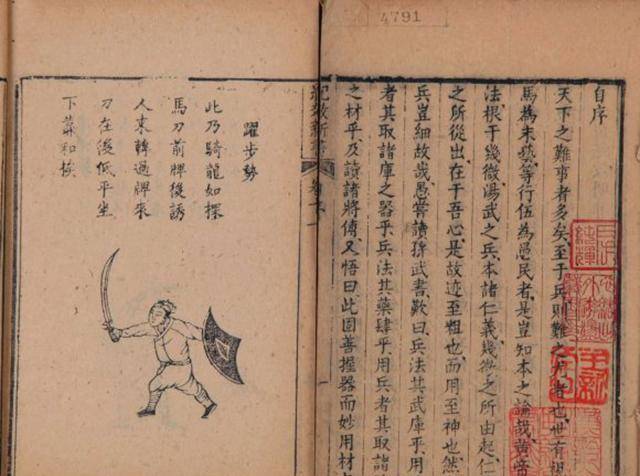 4791
自序
天下之難事者多矣至于兵則難之尤者也世有
馬為末藝等行伍為愚民者是豈知本之論哉黃帝
法根于幾微湯武之兵本諸仁義幾微之所由起仁
之所從出在于吾心是故迹至粗也而用至神也然
兵豈細故哉愚嘗讀孫武書歎曰兵法其武庫乎用
者其取諸庫之器乎兵法其藥肆乎用兵者其取諸
之材乎及讀諸將傳又悟曰此固善握器而妙用材
紀效新書
躍步勢
此乃騎龍如探
馬刀前牌後誘
人來轉過牌來
刀在後低平坐
下蕭和挨